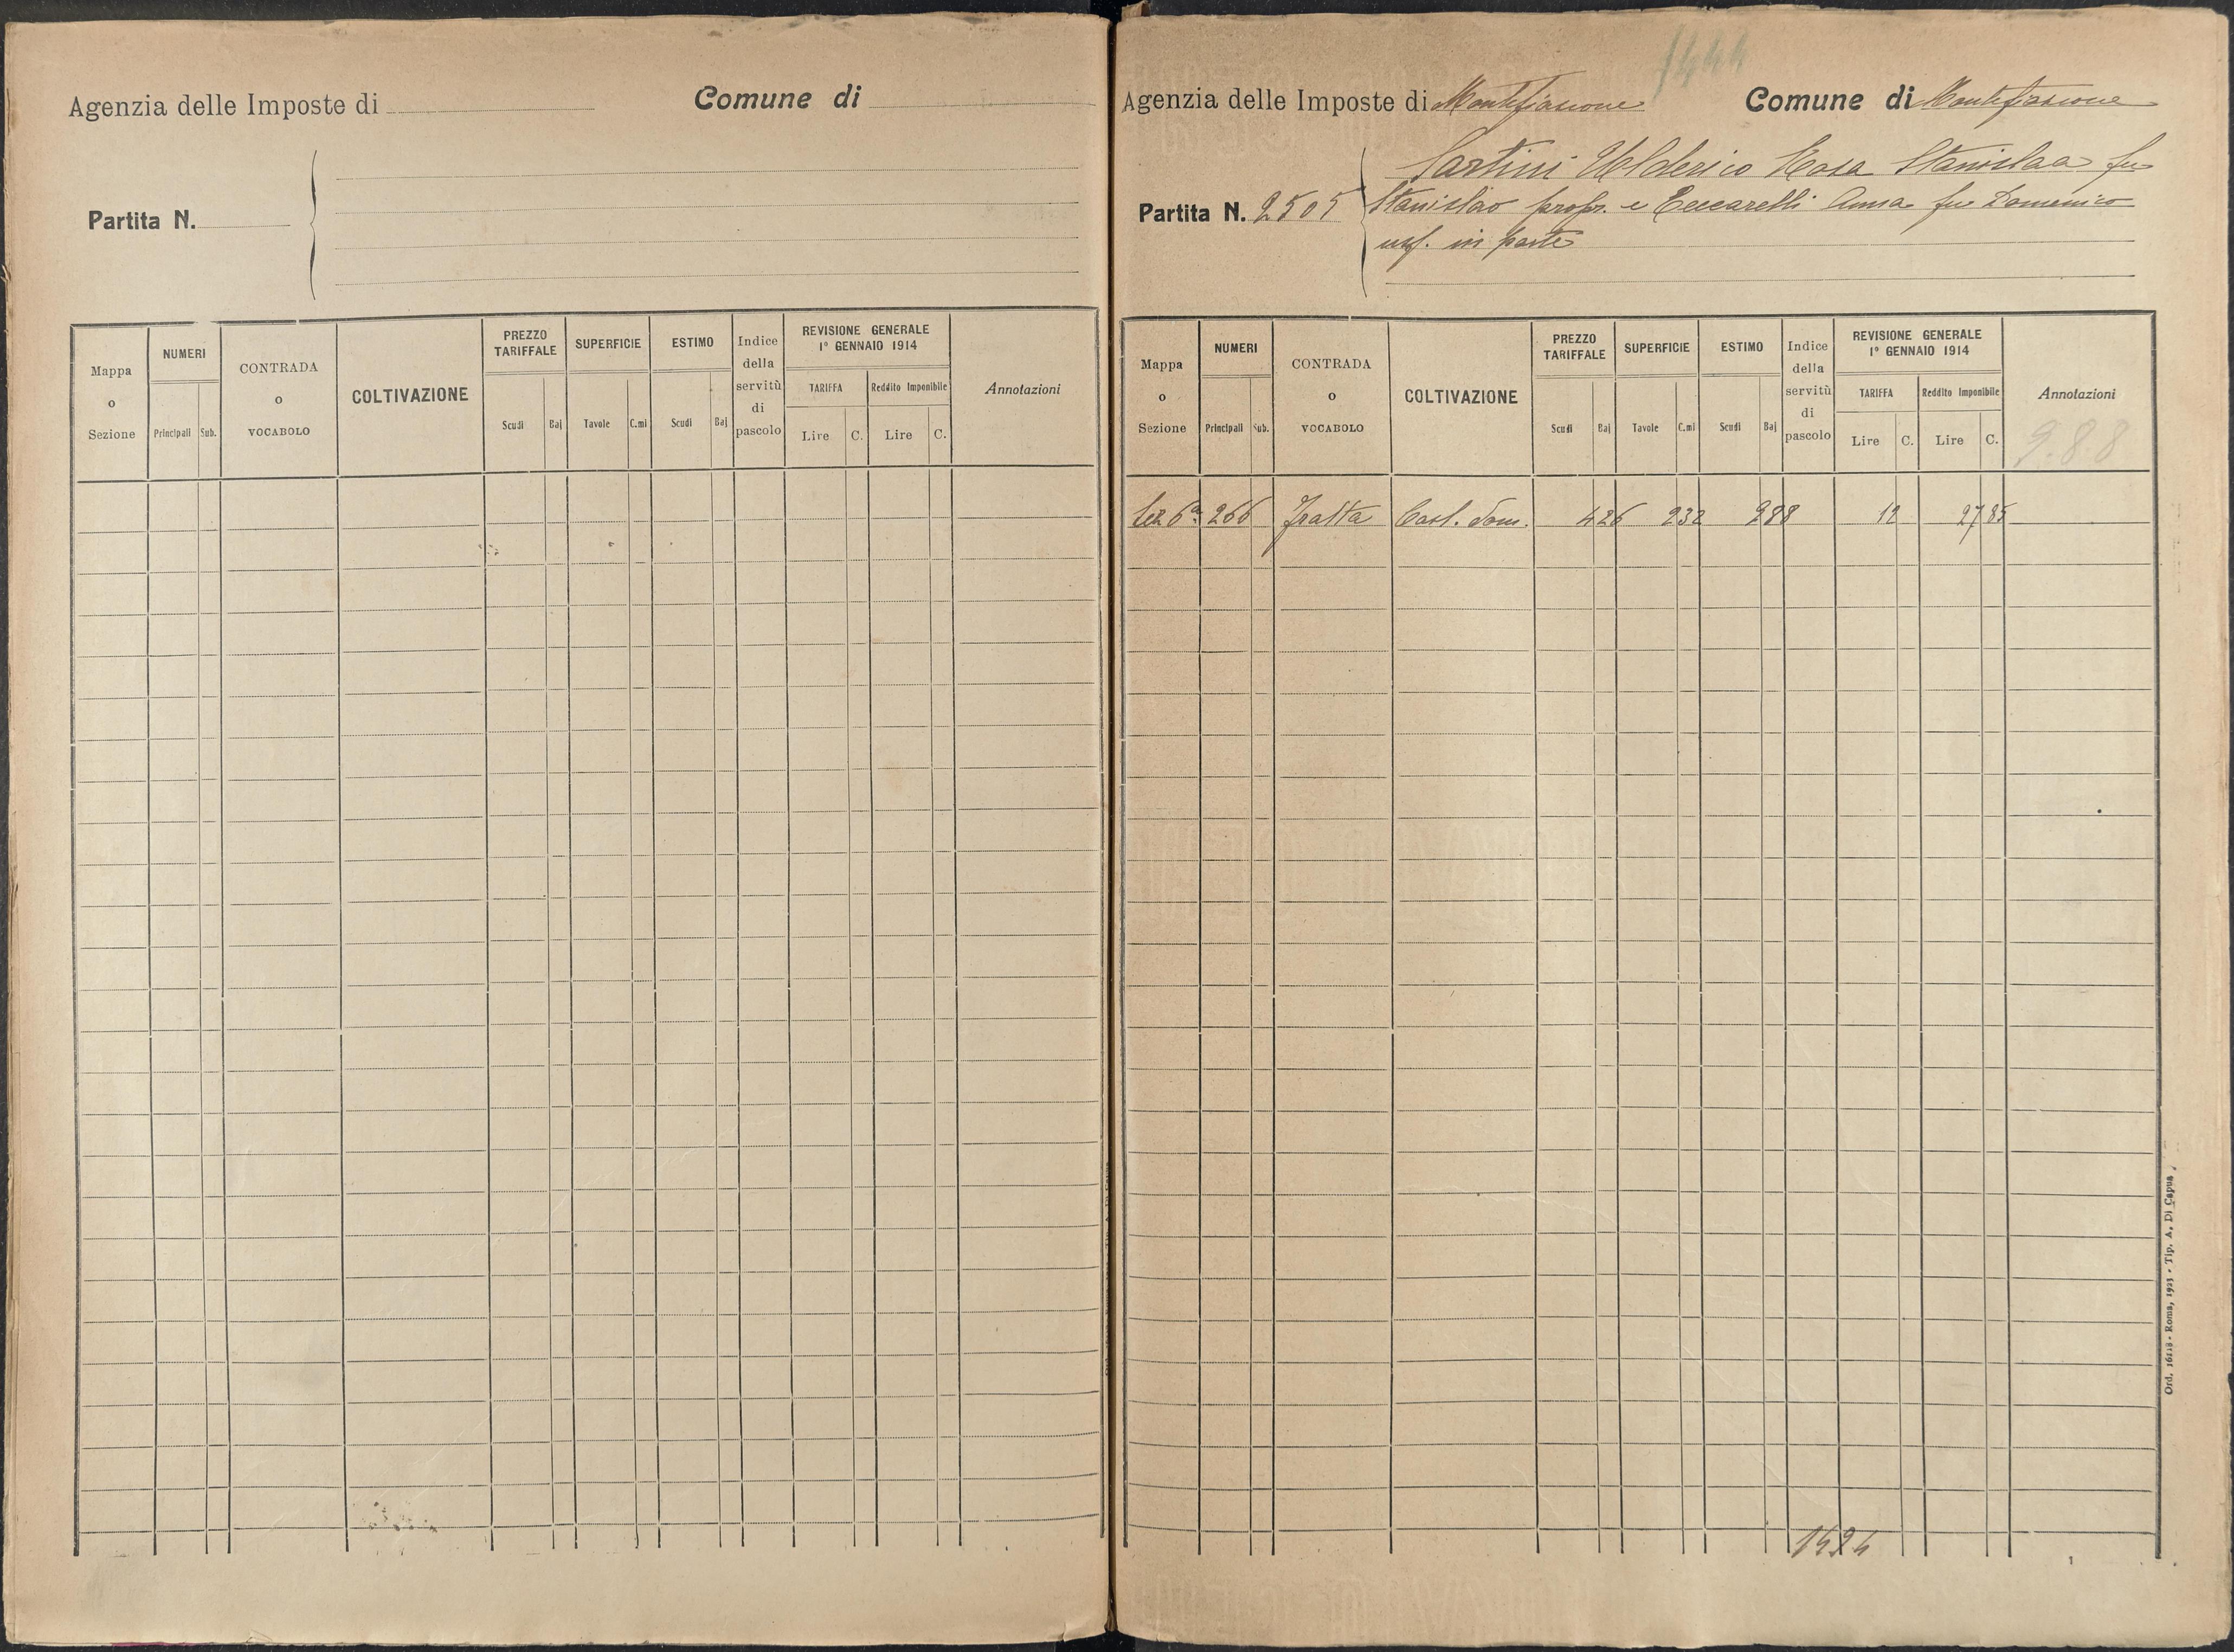 Agenzia delle Imposte di
Comune di
Partita N.
Mappa o Sezione
NUMERI
Principali Sub.
CONTRADA o VOCABOLO
COLTIVAZIONE
PREZZO TARIFFALE
Scudi Baj
SUPERFICIE
Tavole C.mi
ESTIMO
Scudi Baj
Indice della servitù di pascolo
REVISIONE GENERALE
1° GENNAIO 1914
TARIFFA
Lire C.
Reddito Imponibile
Lire C.
Annotazioni
1444
Agenzia delle Imposte di Montefiascone
Comune di Montefiascone
Partita N. 2505
Sartini Ulderico Rosa Stanislaa fu
Stanislao propr. e Ceccarelli Anna fu Domenico
usf. in parte
Mappa o Sezione
NUMERI
Principali Sub.
CONTRADA o VOCABOLO
COLTIVAZIONE
PREZZO TARIFFALE
Scudi Baj
SUPERFICIE
Tavole C.mi
ESTIMO
Scudi Baj
Indice della servitù di pascolo
REVISIONE GENERALE
1° GENNAIO 1914
TARIFFA
Lire C.
Reddito Imponibile
Lire C.
Annotazioni
9.88
Sez 6a 266 Fratta Cast. dom. 426 232 988 12 27 85
1424
Ord. 16118 - Roma, 1923 - Tip. A. Di Capua